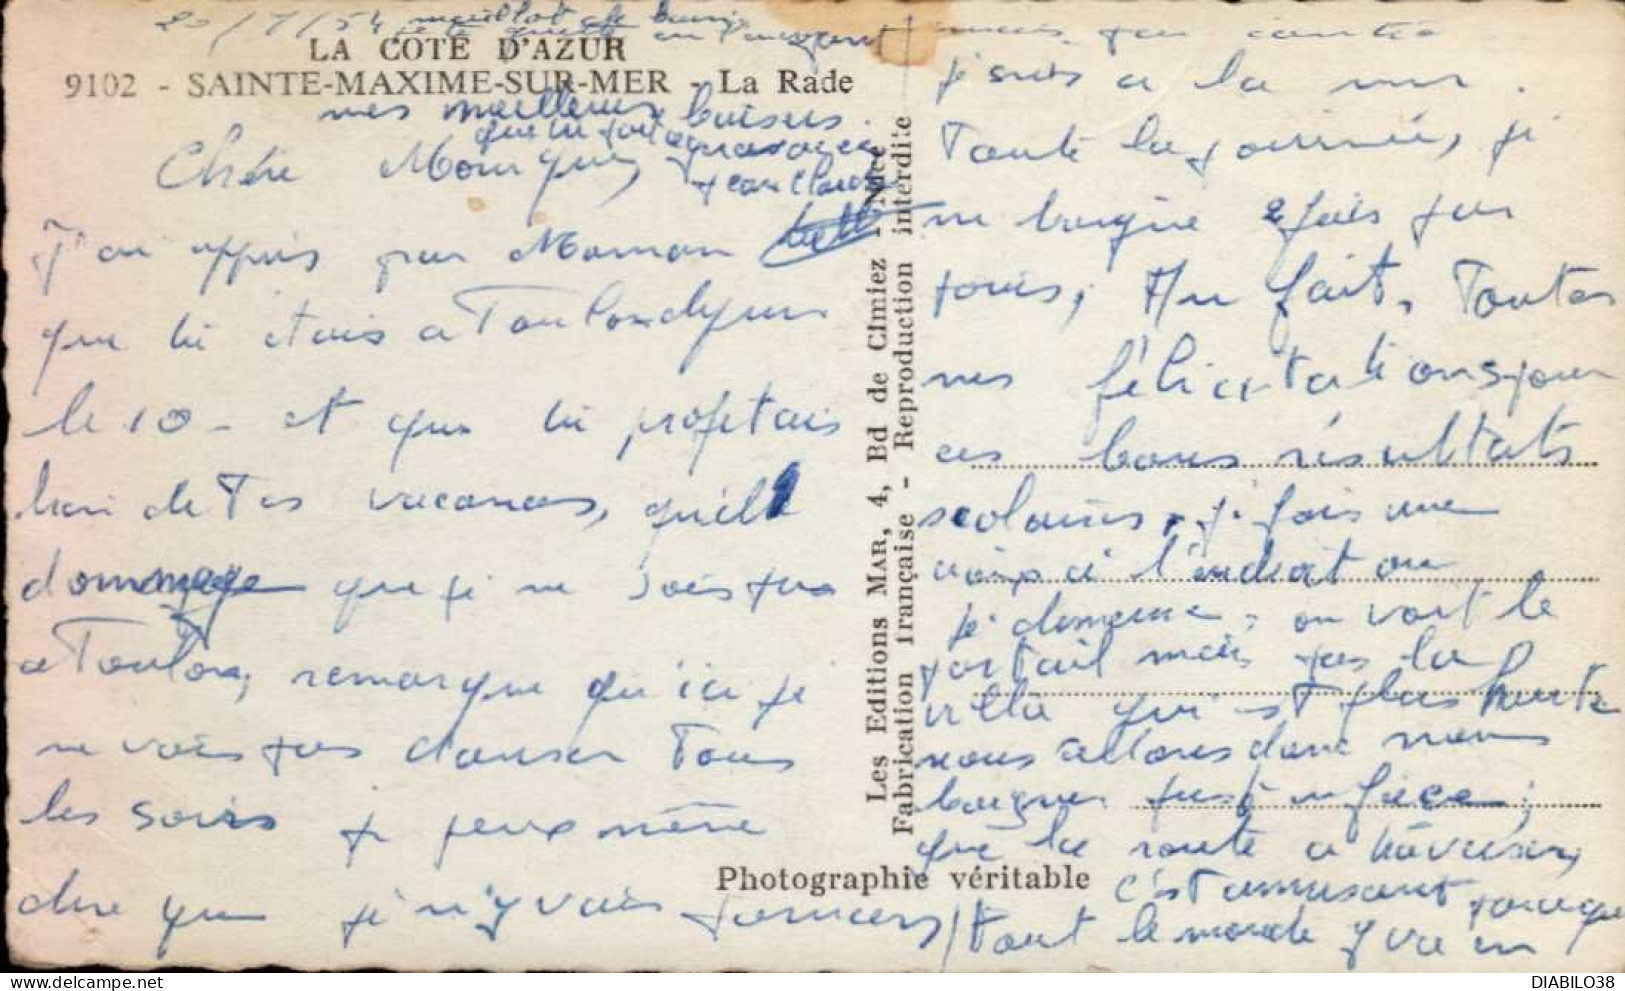 20/7/54 maillot de bain
LA COTE D'AZUR
9102 - SAINTE-MAXIME-SUR-MER - La Rade
mes meilleurs baisers.
Chère
J'ai appris par Maman
que tu étais à Toulon depuis
le 10 - et que tu profitais
bien de tes vacances, quelle
dommage que je ne sois pas
a Toulon, remarque qu'ici je
ne vais pas danser tous
les soirs je peux même
dire que je n'y vais jamais
mais par contre
je suis a la mer.
Toute la journée, je
me baigne 2 fois par
jours, Au fait, Toutes
mes félicitations pour
ces bons résultats
scolaires, je fais une
croix à l'endroit ou
je demeure, on voit le
portail mais pas la
villa qui est plus haute
nous allons donc nous
baigner juste en face,
que la route a traverser,
c'est amusant parceque
tout le monde y va en
Les Editions MAR, 4, Bd de Cimiez - Nice
Fabrication française - Reproduction interdite
Photographie véritable